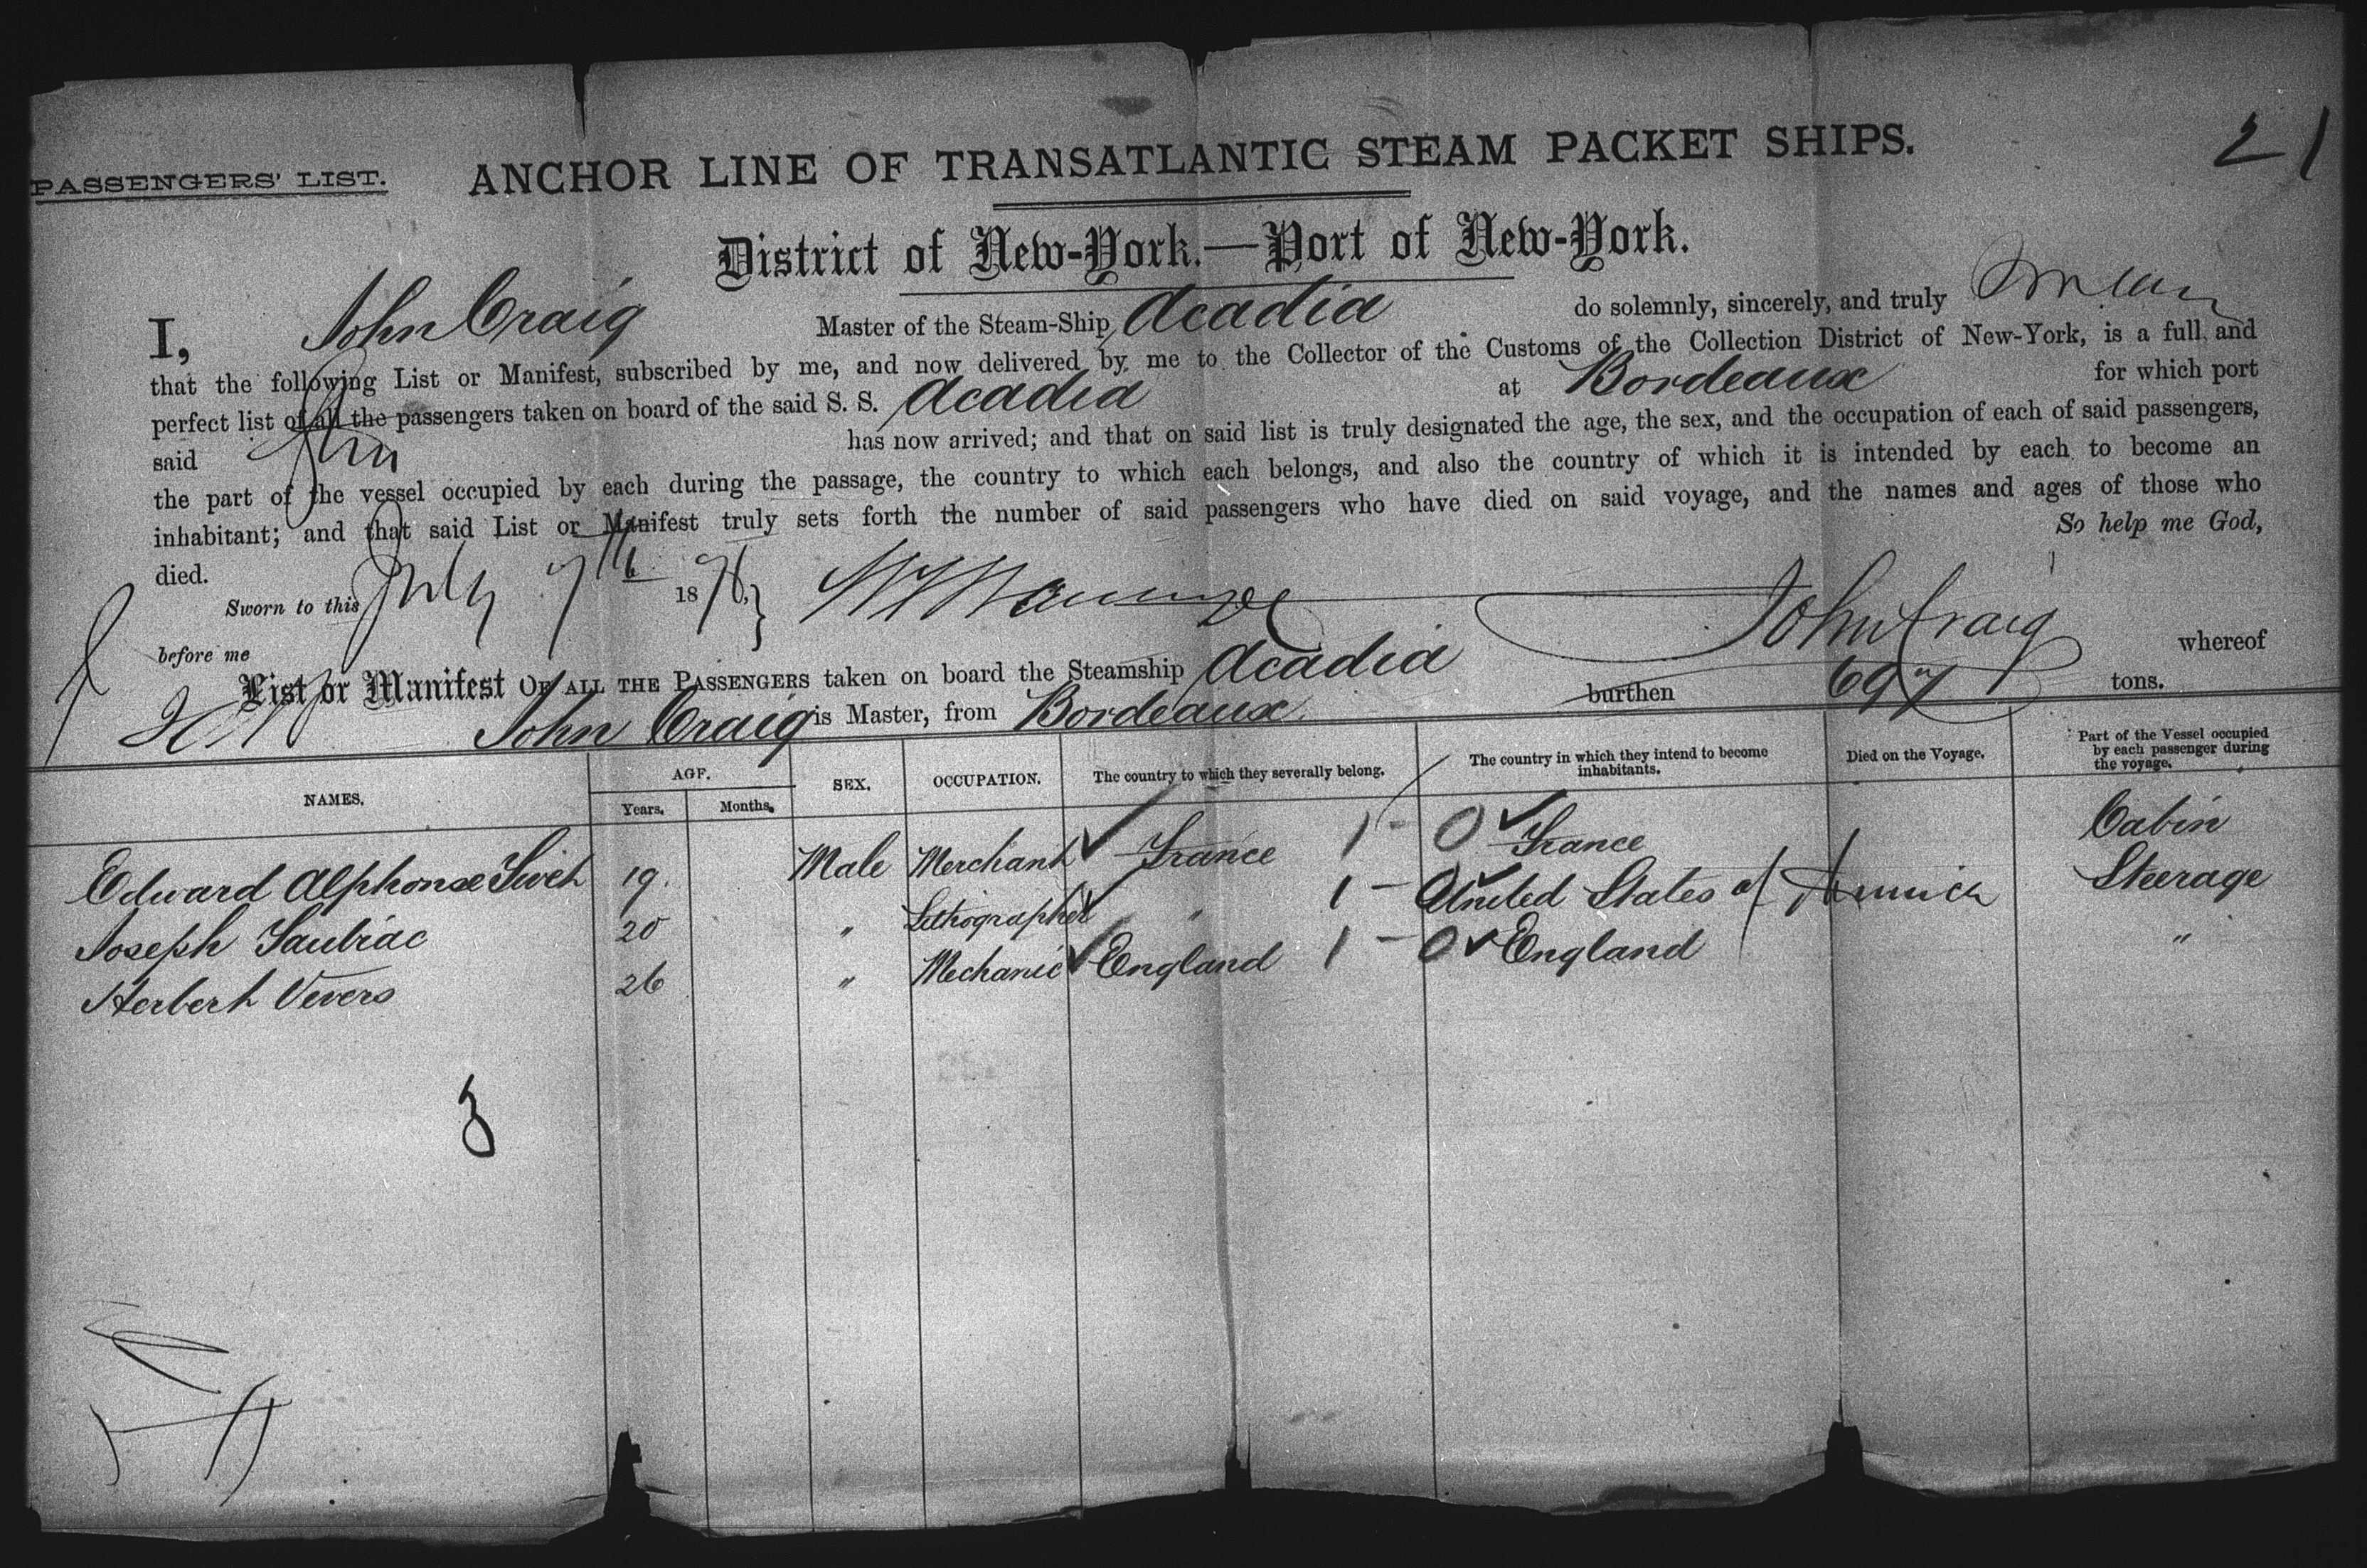 21
PASSENGERS' LIST. ANCHOR LINE OF TRANSATLANTIC STEAM PACKET SHIPS.
District of New-York.—Port of New-York.
I, John Craig Master of the Steam-Ship Acadia do solemnly, sincerely, and truly swear
that the following List or Manifest, subscribed by me, and now delivered by me to the Collector of the Customs of the Collection District of New-York, is a full and
perfect list of all the passengers taken on board of the said S. S. Acadia at Bordeaux for which port
said has now arrived; and that on said list is truly designated the age, the sex, and the occupation of each of said passengers,
the part of the vessel occupied by each during the passage, the country to which each belongs, and also the country of which it is intended by each to become an
inhabitant; and that said List or Manifest truly sets forth the number of said passengers who have died on said voyage, and the names and ages of those who
died. So help me God,
Sworn to this July 7th 1876,
before me John Craig
List or Manifest OF ALL THE PASSENGERS taken on board the Steamship Acadia whereof
John Craig is Master, from Bordeaux. burthen 697 tons.
NAMES. AGE. Years. Months. SEX. OCCUPATION. The country to which they severally belong. The country in which they intend to become inhabitants. Died on the Voyage. Part of the Vessel occupied by each passenger during the voyage.
Edward Alphonse 19. Male Merchant France 1 - 0 France Cabin
Joseph 20 " Lithographer " 1 - 0 United States of America Steerage
Herbert Vevers 26 " Mechanic England 1 - 0 England "
3